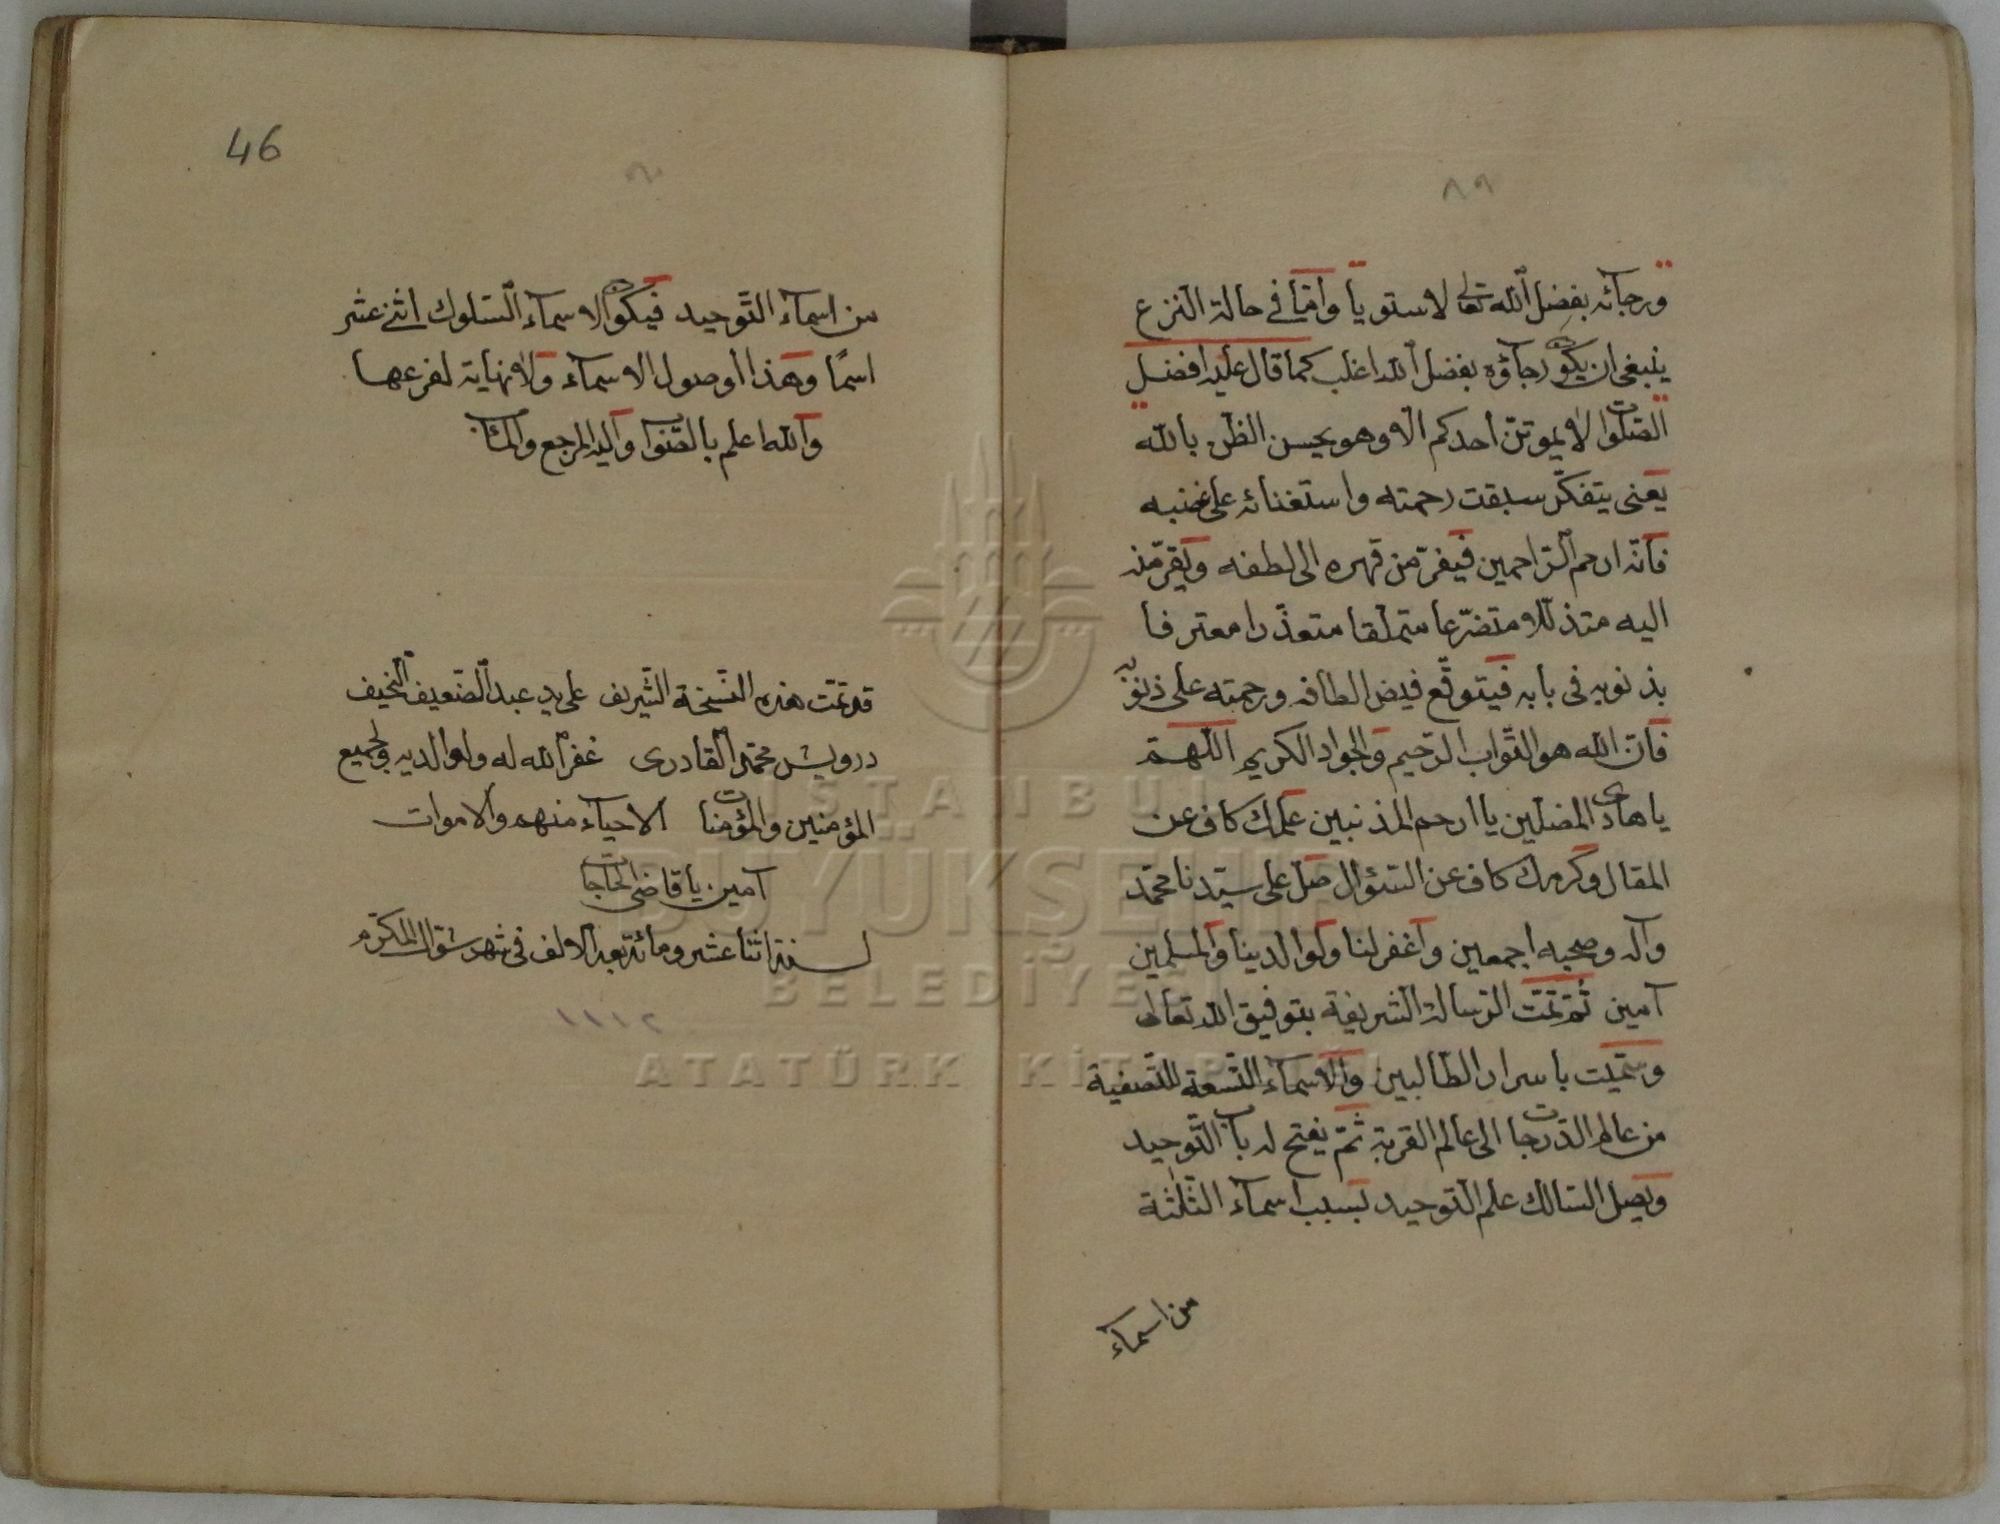 ٨٩
ورجائه بفضل الله تعالى لاستويا واما في حالة النزع
ينبغى ان يكون رجاؤه بفضل الله اغلب كما قال عليه افضل
الصلوات لا يموتن احدكم الا وهو يحسن الظن بالله
يعنى يتفكر سبقت رحمته واستغنائه على غضبه
فانه ارحم الراحمين فيفر من قهره الى لطفه ويفر منه
اليه متذللا متضرعا متملقا متعذرا معترفا
بذنوبه فى بابه فيتوقع فيض الطافه ورحمته على ذنوبه
فان الله هو التواب الرحيم والجواد الكريم اللهم
يا هادى المضلين يا ارحم المذنبين علمك كاف عن
المقال وكرمك كاف عن السؤال صل على سيدنا محمد
وآله وصحبه اجمعين واغفر لنا ولوالدينا والمسلمين
آمين ثم تمت الرسالة الشريفة بتوفيق الله تعالى
وسميت باسرار الطالبين والاسماء التسعة للتصفية
من عالم الدرجات الى عالم القربة ثم يفتح له باب التوحيد
ويصل السالك علم التوحيد بسبب اسماء الثلثة
من اسماء
46
٩٠
من اسماء التوحيد فيكون الاسماء السلوك اثنى عشر
اسمًا وهذا اوصول الاسماء ولا نهاية لفرعها
والله اعلم بالصواب واليه المرجع والمآب
قد تمت هذه النسخة الشريف على يد عبد الضعيف النحيف
درويش محمد القادرى غفر الله له ولوالديه ولجميع
المؤمنين والمؤمنات الاحياء منهم والاموات
آمين يا قاضى الحاجات
لسنة اثنا عشر ومائة بعد الالف فى شهر شوال المكرم
١١١٢
ISTANBUL
BÜYÜKŞEHİR
BELEDİYESİ
ATATÜRK KİTAPLIĞI